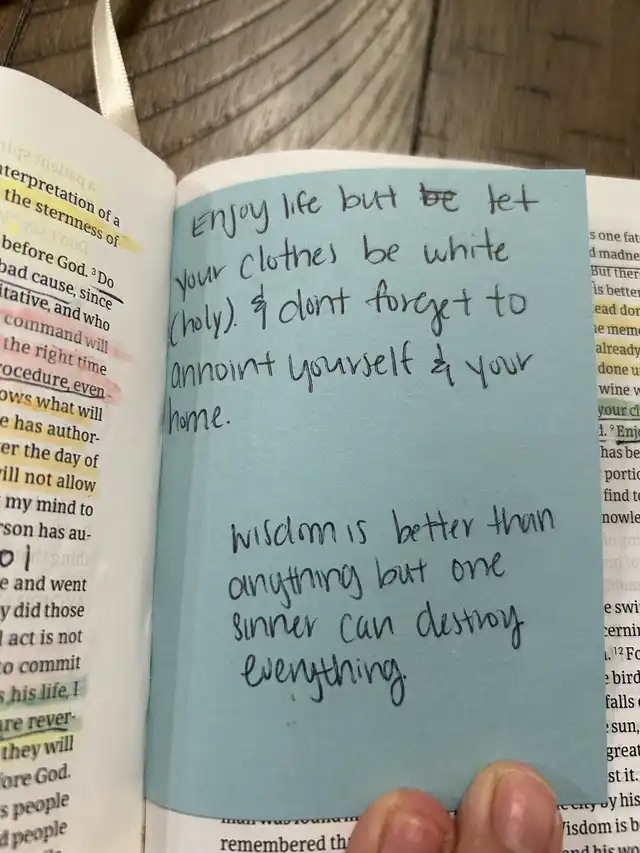 nterpretation of a
the sternness of
before God. ³Do
bad cause, since
itative, and who
command will
the right time
rocedure, even-
ows what will
e has author-
er the day of
vill not allow
my mind to
rson has au-
e and went
y did those
l act is not
to commit
s his life, I
are rever-
they will
fore God.
s people
d people
Enjoy life but be let
your clothes be white
(holy). & dont forget to
annoint yourself & your
home.
wisdom is better than
anything but one
sinner can destroy
everything.
remembered tha
s one fat
d madne
But ther
is better
ead do
e mem
already
done u
wine w
your cl
. ⁹Enj
has be
portio
find t
nowle
e swi
cerni
. ¹² Fo
e bird
falls
sun,
great
st it.
e city by his
Wisdom is b
and his wo